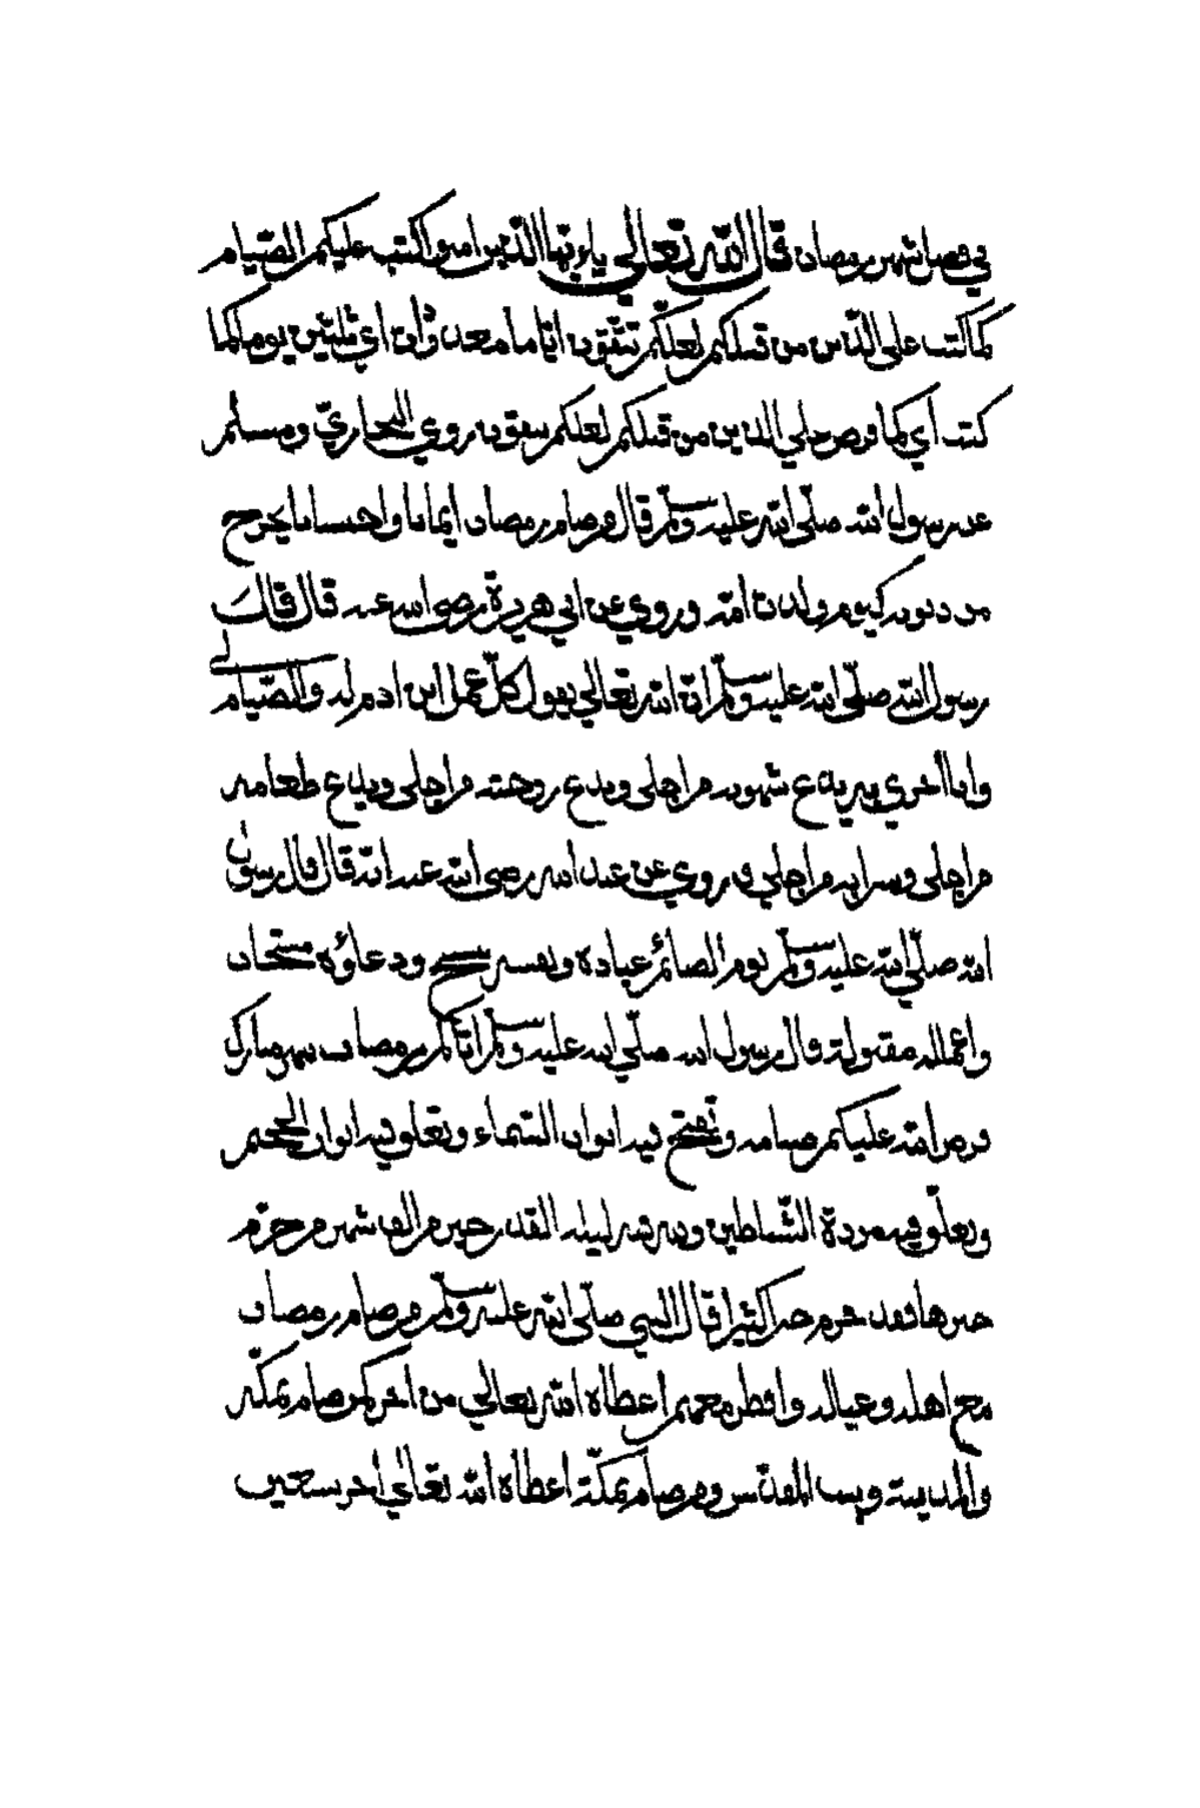 في فضل شهر رمضان قال الله تعالى يا ايها الذين امنوا كتب عليكم الصيام
كما كتب على الذين من قبلكم لعلكم تتقون اياما معدودات اي ثلثين يوما كما
كتب اي كما فرض على الذين من قبلكم لعلكم تتقون روي البخاري ومسلم
عن رسول الله صلى الله عليه وسلم قال من صام رمضان ايمانا واحتسابا يخرج
من ذنوبه كيوم ولدت امه وروي عن ابي هريرة رضي الله عنه قال قال
رسول الله صلى الله عليه وسلم ان الله تعالى يقول كل عمل ابن ادم له والصيام لي
وانا اجزي به يدع شهوته من اجلي ويدع زوجته من اجلي ويدع طعامه
من اجلي وشرابه من اجلي وروي عن عبد الله رضي الله عنه انه قال قال رسول
الله صلى الله عليه وسلم نوم الصائم عبادة ونفسه تسبيح ودعاؤه مستجاب
واعماله مقبولة وقال رسول الله صلى الله عليه وسلم اتاكم رمضان شهر مبارك
فرض الله عليكم صيامه وتفتح فيه ابواب السماء وتغلق فيه ابواب الجحيم
وتغل فيه مردة الشياطين وفيه ليلة القدر خير من الف شهر من حرم
خيرها فقد حرم خيرا كثيرا قال النبي صلى الله عليه وسلم من صام رمضان
مع اهله وعياله وافطر معهم اعطاه الله تعالى من اجر كمن صام بمكة
والمدينة وبيت المقدس ومن صام بمكة اعطاه الله تعالى اجر سبعين